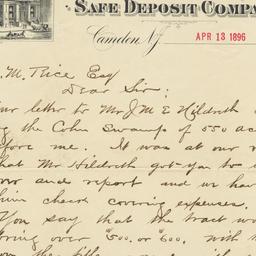 SAFE DEPOSIT COMPA
Camden, N.J. APR 13 1896
M. Price Esq
Dear Sir:
our letter to Mr J M E Hildreth
the Cohn Swamps of 550 ac
fore me. It was at our
at Mr Hildreth got you to
and report and we ha
him check covering expenses.
You say that the tract wo
bring over $500. or $600. with